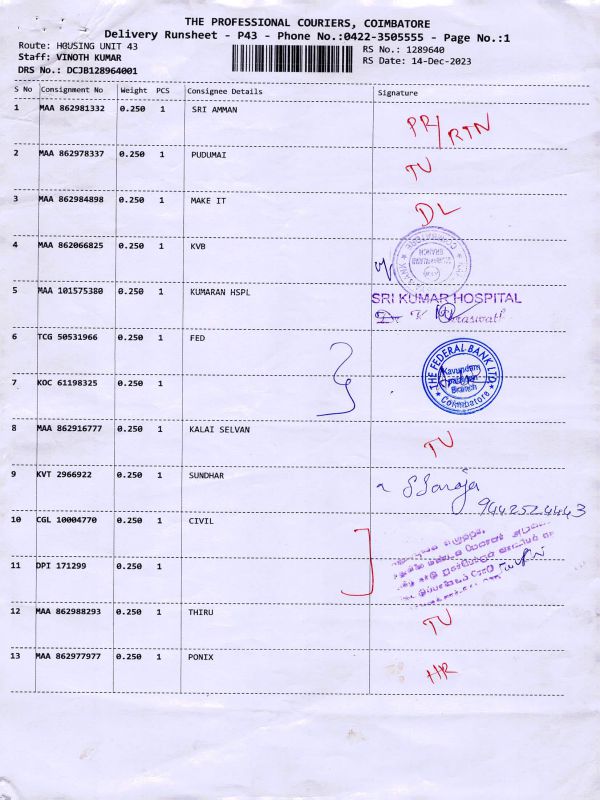 THE PROFESSIONAL COURIERS, COIMBATORE
Delivery Runsheet - P43 - Phone No.:0422-3505555 - Page No.:1
Route: HOUSING UNIT 43
RS No.: 1289640
Staff: VINOTH KUMAR
RS Date: 14-Dec-2023
DRS No.: DCJB128964001
S No Consignment No Weight PCS Consignee Details Signature
1 MAA 862981332 0.250 1 SRI AMMAN PR/RTN
2 MAA 862978337 0.250 1 PUDUMAI TU
3 MAA 862984898 0.250 1 MAKE IT DL
4 MAA 862066825 0.250 1 KVB
5 MAA 101575380 0.250 1 KUMARAN HSPL SRI KUMAR HOSPITAL
6 TCG 50531966 0.250 1 FED THE FEDERAL BANK LTD.
Branch
Coimbatore
7 KOC 61198325 0.250 1
8 MAA 862916777 0.250 1 KALAI SELVAN TU
9 KVT 2966922 0.250 1 SUNDHAR
9442524443
10 CGL 10004770 0.250 1 CIVIL
11 DPI 171299 0.250 1
12 MAA 862988293 0.250 1 THIRU TU
13 MAA 862977977 0.250 1 PONIX HR